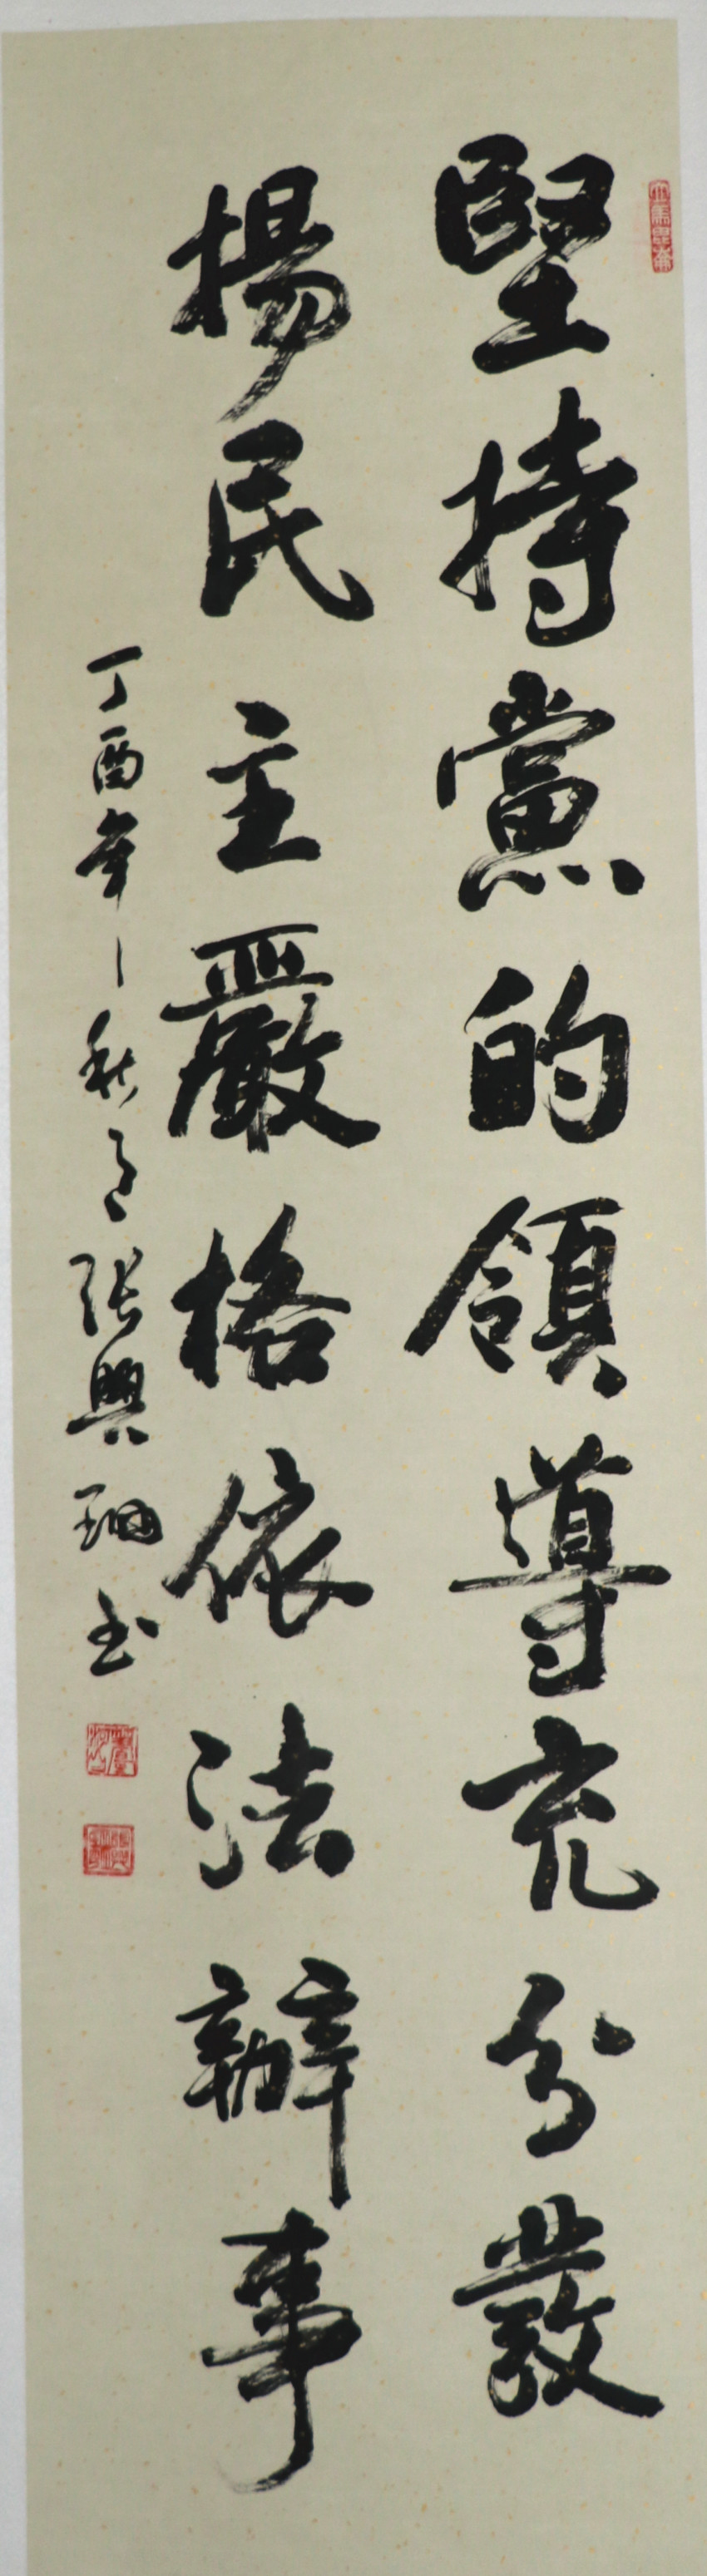 堅持黨的領導充分發
揚民主嚴格依法辦事
丁酉年秋月張興珊书